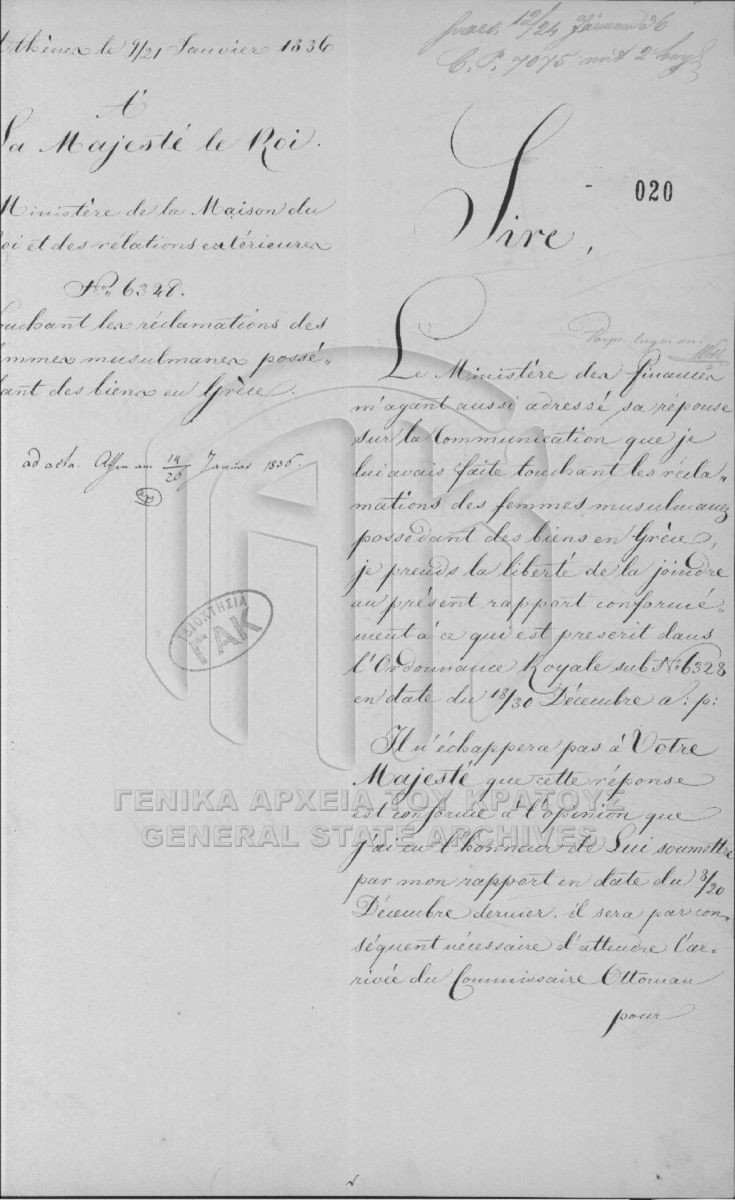 Athènes le 9/21 Janvier 1836
A
Sa Majesté le Roi.
Ministère de la Maison du
Roi et des rélations extérieures
No. 6328.
touchant les réclamations des
femmes musulmanes possé„
dant des biens en Grèce.
ad acta. Athen am 14/26 Januar 1836.
praes. 12/24 Januar 36
C. P. 7075 mit 2
020
Sire,
Le Ministère des Finances
m'ayant aussi adressé sa réponse
sur la Communication que je
lui avais faite touchant les récla„
mations des femmes musulmanes
possédant des biens en Grèce,
je prends la liberté de la joindre
au présent rapport conformé„
ment à ce qui est prescrit dans
l'Ordonnance Royale sub No. 6328
en date du 18/30 Décembre a: p:
Il n'échappera pas à Votre
Majesté que cette réponse
est conforme à l'opinion que
j'ai eu l'honneur de Lui soumettre
par mon rapport en date du 8/20
Décembre dernier. il sera par con„
séquent nécessaire d'attendre l'ar„
rivée du Commissaire Ottoman
pour
ΙΔΙΟΚΤΗΣΙΑ
ΓΑΚ
ΓΕΝΙΚΑ ΑΡΧΕΙΑ ΤΟΥ ΚΡΑΤΟΥΣ
GENERAL STATE ARCHIVES